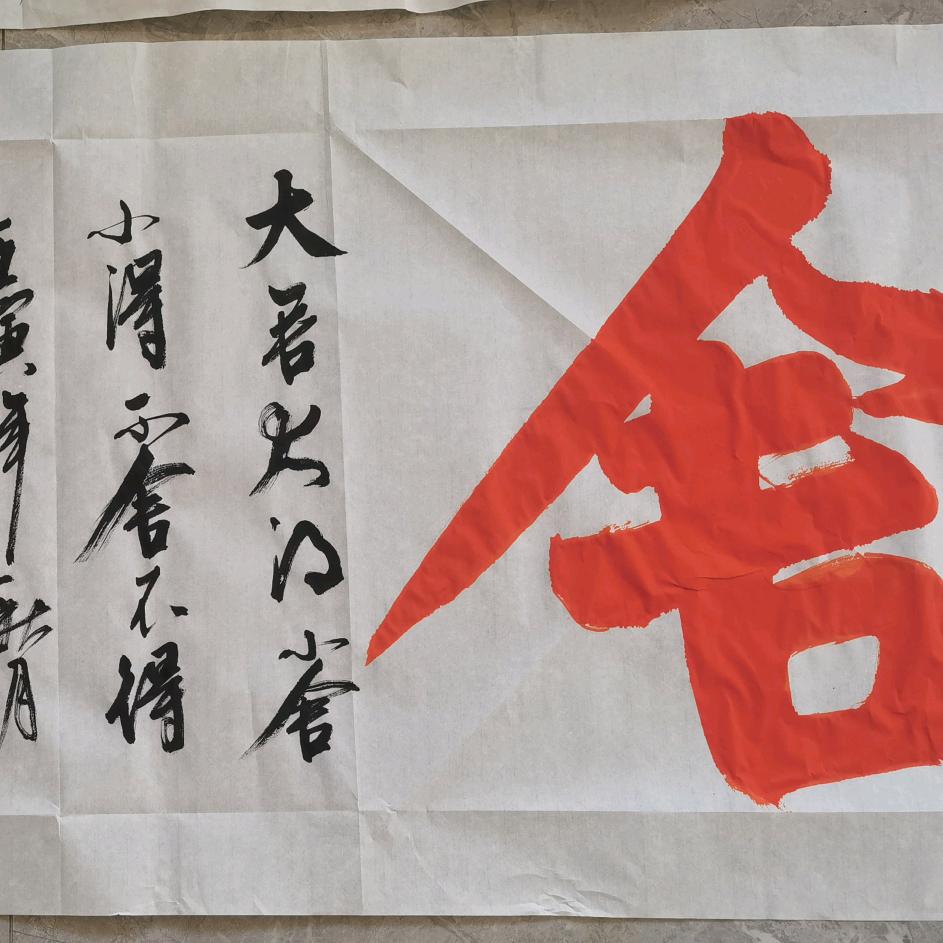 舍
大舍大得小舍
小得不舍不得
壬寅年秋月